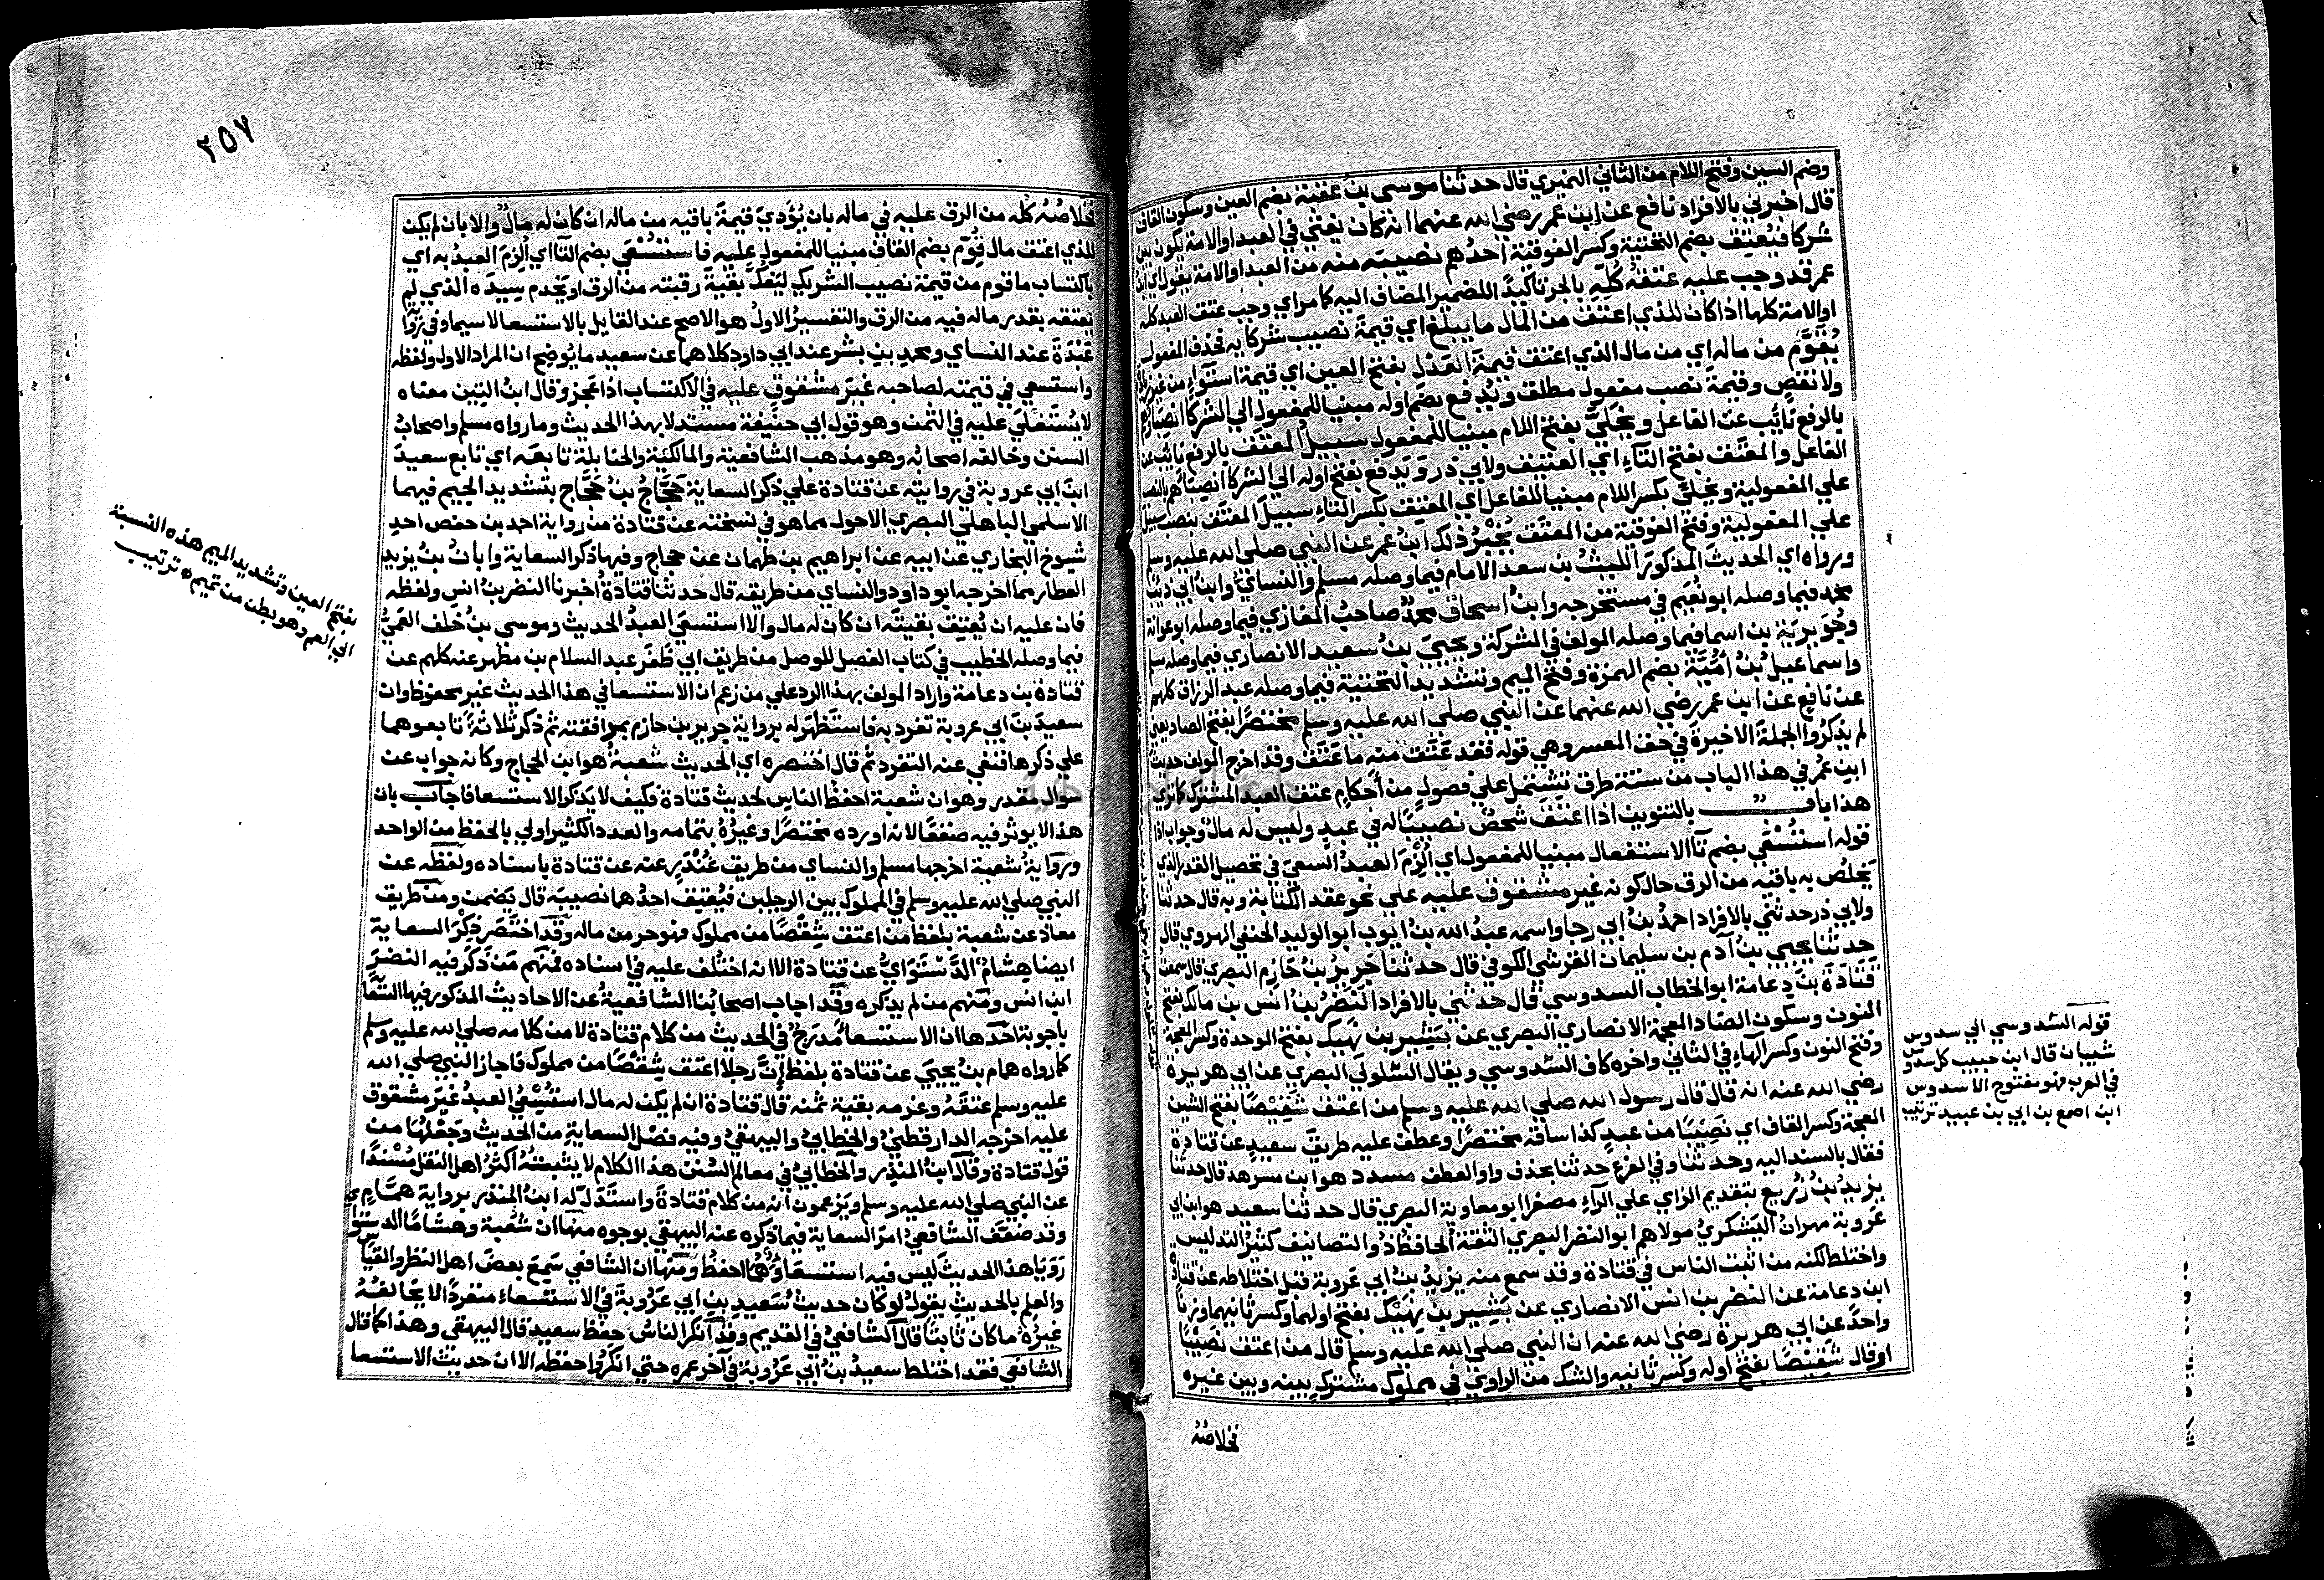 وضم السين وفتح اللام من الثاني النميري قال حدثنا موسى بن عقبة بضم العين وسكون القاف
قال اخبرني بالافراد نافع عن ابن عمر رضي الله عنهما انه كان يفتي في العبد او الامة يكون بين
شركا فيُعتِق بضم التحتية وكسر الفوقية احدُهم نصيبَه منه من العبد او الامة يقول اي ابن
عمر قد وجب عليه عتقُه كُلِّهِ بالجر تاكيدًا للضمير المضاف اليه كما مر اي وجب عتق العبد كله
او الامة كلها اذا كان للذي اعتق من المال ما يبلغ اي قيمة نصيب شركايه فحذف المفعول
يُقَوَّم من ماله اي من مال الذي اعتق قيمةَ العدل بفتح العين اي قيمة استواء من غير زيادة
ولا نقص وقيمةَ نصب مفعول مطلق ويُدفع بضم اوله مبنيا للمفعول الي الشركا انصباؤهم
بالرفع نايب عن الفاعل ويُخَلّيَ بفتح اللام مبنيا للمفعول سبيلُ المعتَق بالرفع نايب عن
الفاعل والمعتَق بفتح التاء اي العتيق ولابي ذر ويَدفع بفتح اوله الي الشركا انصباءهم بالنصب
علي المفعولية ويخلي بكسر اللام مبنيا للفاعل اي المعتِق بكسر التاء سبيلَ المعتَق بنصب سبيل
علي المفعولية وفتح الفوقية من المعتق يُخبِرُ ذلك ابن عمر عن النبي صلي الله عليه وسلم
ورواه اي الحديث المذكور الليثُ بن سعد الامام فيما وصله مسلم والنسايُ وابن ابي ذيب
محمد فيما وصله ابو نُعَيم في مستخرجه وابنُ اسحاق محمدٌ صاحبُ المغازي فيما وصله ابو عوانة
وجُوَيرِيَة بن اسما فيما وصله المولف في الشركة ويحيي بنُ سعيد الانصاري فيما وصله مسلم
واسماعيلُ بنُ اُمَيَّة بضم الهمزة وفتح الميم وتشديد التحتية فيما وصله عبد الرزاق كلهم
عن نافع عن ابن عمر رضي الله عنهما عن النبي صلي الله عليه وسلم مختصَرًا بفتح الصاد يعني
لم يذكروا الجملة الاخيرة في حق المعسر وهي قوله فقد عتق منه ما عتق وقد اخرج المولف حديث
ابن عمر في هذا الباب من ستة طرق تشتمل علي فصول من احكام عتق العبد المشترك كما تري
هذا باب بالتنوين اذا اعتق شخصٌ نصيبًا له في عبدٍ وليس له مالٌ وجواب اذا
قوله استُسعِي بضم تا الاستفعال مبنيا للمفعول اي اُلزِمَ العبدُ السعيَ في تحصيل القدر الذي
يخلُص به باقيه من الرق حال كونه غير مشقوق عليه علي نحو عقد الكتابة وبه قال حدثنا
ولابي ذر حدثني بالافراد احمدُ بنُ ابي رجا واسمه عبدُ الله بنُ ايوب ابو الوليد الحنفي الهروي قال
حدثنا يحيي بنُ آدم بن سليمان القرشي الكوفي قال حدثنا جريرُ بنُ حازم البصري قال سمعت
قتادة بن دِعامة ابو الخطاب السدوسي قال حدثني بالافراد النَّضْرُ بنُ انس بن مالك بفتح
النون وسكون الضاد المعجمة الانصاري البصري عن بشير بن نَهِيك بفتح الموحدة وكسر المعجمة
وفتح النون وكسر الهاء في الثاني واخره كاف السَّدوسي ويقال السَّلولي البصري عن ابي هريرة
رضي الله عنه انه قال قال رسول الله صلي الله عليه وسلم من اعتق شَقِيصًا بفتح الشين
المعجمة وكسر القاف اي نصيبًا من عبدٍ كذا ساقه مختصرًا وعطف عليه طريق سعيد عن قتادة
فقال بالسند اليه وحدثنا وفي الفرع حدثنا بحذف واو العطف مسدد هو ابن مسرهد قال حدثنا
يزيدُ بنُ زُرَيع بتقديم الزاي علي الراء مصغرا ابو معاوية البصري قال حدثنا سعيد هو ابن ابي
عَروبة مهران اليَشكريُ مولاهم ابو النضر البصري الثقة الحافظ ذو التصانيف كثيرُ التدليس
واختلط لكنه من اثبت الناس في قتادة وقد سمع منه يزيدُ بنُ ابي عروبة قبل اختلاطه عن قتادة
ابن دعامة عن النضر بن انس الانصاري عن بَشِير بن نَهِيْك بفتح اولهما وكسر ثانيهما وزنًا
واحدًا عن ابي هريرة رضي الله عنه ان النبي صلي الله عليه وسلم قال من اعتق نصيبًا
او قال شَقِيْصًا بفتح اوله وكسر ثانيه والشك من الراوي في مملوك مشترك بينه وبين غيره
فخلاصُهُ
قوله السدوسي الي سدوس
شيبان قال ابن حبيب كل سدوس
في العرب فهو مفتوح الا سدوس
ابن اصمع بن ابي بن عبيد ترتيب
٢٥٧
فخلاصُهُ كلُه من الرق عليه في ماله بان يُؤدي قيمةَ باقيه من ماله ان كان له مالٌ والا بان لم يكن
للذي اعتق مال قُوِّم بضم القاف مبنيا للمفعول عليه فاستُسعِي بضم التا اي اُلزِمَ العبدُ به اي
باكتساب ما قوم من قيمة نصيب الشريك ليَفُكَّ بقيةَ رقبته من الرق او يخدم سيدَه الذي لم
يعتقه بقدر ماله فيه من الرق والتفسيرُ الاول هو الاصح عند القايل بالاستسعا لا سيما وفي رواية
عَبْدَةَ عند النساي ومحمد بن بشر عند ابي داود كلاهما عن سعيد ما يُوضح ان المراد الاول ولفظه
واستسعي في قيمته لصاحبه غيرَ مشقوق عليه في الاكتساب اذا عجز وقال ابنُ التين معناه
لا يُستَغلَي عليه في الثمن وهو قول ابي حنيفة مستدلا بهذا الحديث وما رواه مسلم واصحابُ
السنن وخالفه اصحابه وهو مذهب الشافعية والمالكية والحنابلة تابعه اي تابع سعيدَ
ابنَ ابي عروبة في روايته عن قتادة علي ذكر السعاية حَجّاجُ بنُ حَجّاج بتشديد الجيم فيهما
الاسلمي الباهلي البصري الاحول مما هو في نسخته عن قتادة من رواية احمد بن حفص احدِ
شيوخ البخاري عن ابيه عن ابراهيم بن طهمان عن حجاج وفيها ذكر السعاية وابانُ بنُ يزيد
العطار مما اخرجه ابو داود والنساي من طريقه قال حدثنا قتادةُ اخبرنا النضر بنُ انس ولفظه
فان عليه ان يُعتِق بقيتَه ان كان له مال والا استسعيَ العبدُ الحديث وموسي بنُ خلف العَمّيُّ
فيما وصله الخطيب في كتاب الفصل للوصل من طريق ابي ظَفَر عبد السلام بن مظهر عنه كلهم عن
قتادة بن دعامة واراد المولف بهذا الرد علي من زعم ان الاستسعا في هذا الحديث غير محفوظ وان
سعيدَ بنَ ابي عروبة تفرد به فاستَظهَرَ له برواية جرير بن حازم بموافقته ثم ذكر ثلاثةً تابعوهما
علي ذكرها فنفي عنه التفرد ثم قال اختصره اي الحديث شعبةُ هو ابن الحجاج وكانه جواب عن
سوال مقدر وهو ان شعبة احفظ الناس لحديث قتادة فكيف لا يذكر الاستسعا فاجاب بان
هذا لا يوثر فيه ضعفًا لانه اورده مختصرًا وغيرُهُ بتمامه والعدد الكثير اولي بالحفظ من الواحد
وروايةُ شعبة اخرجها مسلم والنساي من طريق غُنْدَرٍ عنه عن قتادة باسناده ولفظُه عن
النبي صلي الله عليه وسلم في المملوك بين الرجلين فيُعتِق احدُهما نصيبه قال يَضمن ومن طريق
معاذ عن شعبة بلفظ من اعتق شِقْصًا من مملوك فهو حر من ماله وقد اختَصَر ذِكْرَ السعاية
ايضا هشامٌ الدَّسْتَوايُّ عن قتادة الا انه اختُلف عليه في اسناده فمنهم مَن ذَكر فيه النضرَ
ابن انس ومنهم من لم يذكره وقد اجاب اصحابُنا الشافعيةُ عن الاحاديث المذكور فيها السِّعايةُ
باجوبة احدها ان الاستسعا مُدرَجٌ في الحديث من كلام قتادة لا من كلامه صلي الله عليه وسلم
كما رواه همام بنُ يحيي عن قتادة بلفظ اِنَّ رجلا اعتق شِقْصًا من مملوك فاجاز النبي صلي الله
عليه وسلم عتقَهُ وغرمه بقية ثمنه قال قتادة ان لم يكن له مال استُسْعِيَ العبدُ غيرَ مشقوق
عليه اخرجه الدارقطنيُ والخطابيُ والبيهقيُ وفيه فصْلُ السعاية من الحديث وجَعْلُها من
قول قتادة وقال ابنُ المنذر والخطابيُ في معالم السنن هذا الكلام لا يُثبِتُهُ اكثرُ اهل النقل مُسْنَدًا
عن النبي صلي الله عليه وسلم ويزعمون انه من كلام قتادة واستَدَلَّ له ابنُ المنذر برواية همّامٍ
وقد ضعّف الشافعيُ امرَ السعاية فيما ذكره عنه البيهقي بوجوه منها ان شُعبة وهشاما الدستواي
رَوَيا هذا الحديثَ ليس فيه استسعا وهُما احفظُ ومنها ان الشافعي سَمِعَ بعضَ اهل النظر والقياس
والعلم بالحديث يقول لو كان حديثُ سَعيدِ بنِ ابي عَرُوبة في الاستسعاء منفردًا لا يُخالفُهُ
غيرُهُ ما كان ثابتا قال الشافعيُ في القديم وقد انكر الناسُ حفظ سعيد قال البيهقي وهذا كما قال
الشافعي فقد اختلط سعيدُ بنُ ابي عَرُوبة في آخر عمره حتي انكروا حفظه الا ان حديث الاستسعا
بفتح العين وتشديد الميم هذه النسبة
الي العم وهو بطن من تميم ه ترتيب